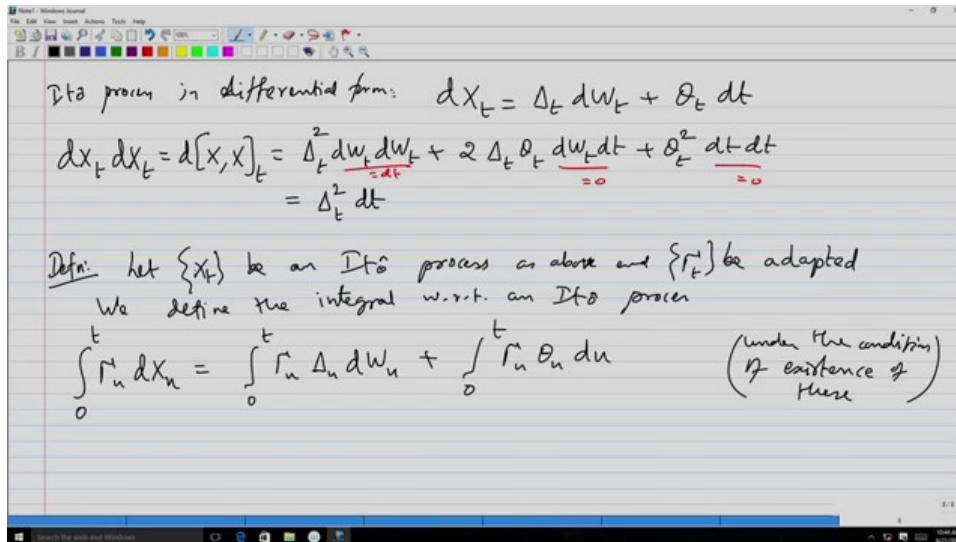 Note1 - Windows Journal
File Edit View Insert Actions Tools Help
Itô process in differential form: dX_t = Δ_t dW_t + θ_t dt
dX_t dX_t = d[X,X]_t = Δ_t^2 dW_t dW_t + 2 Δ_t θ_t dW_t dt + θ_t^2 dt dt
=dt =0 =0
= Δ_t^2 dt
Defn: Let {X_t} be an Itô process as above and {Γ_t} be adapted
We define the integral w.r.t. an Itô process
∫_0^t Γ_u dX_u = ∫_0^t Γ_u Δ_u dW_u + ∫_0^t Γ_u θ_u du (under the conditions of existence of these)
1/1
Search the web and Windows